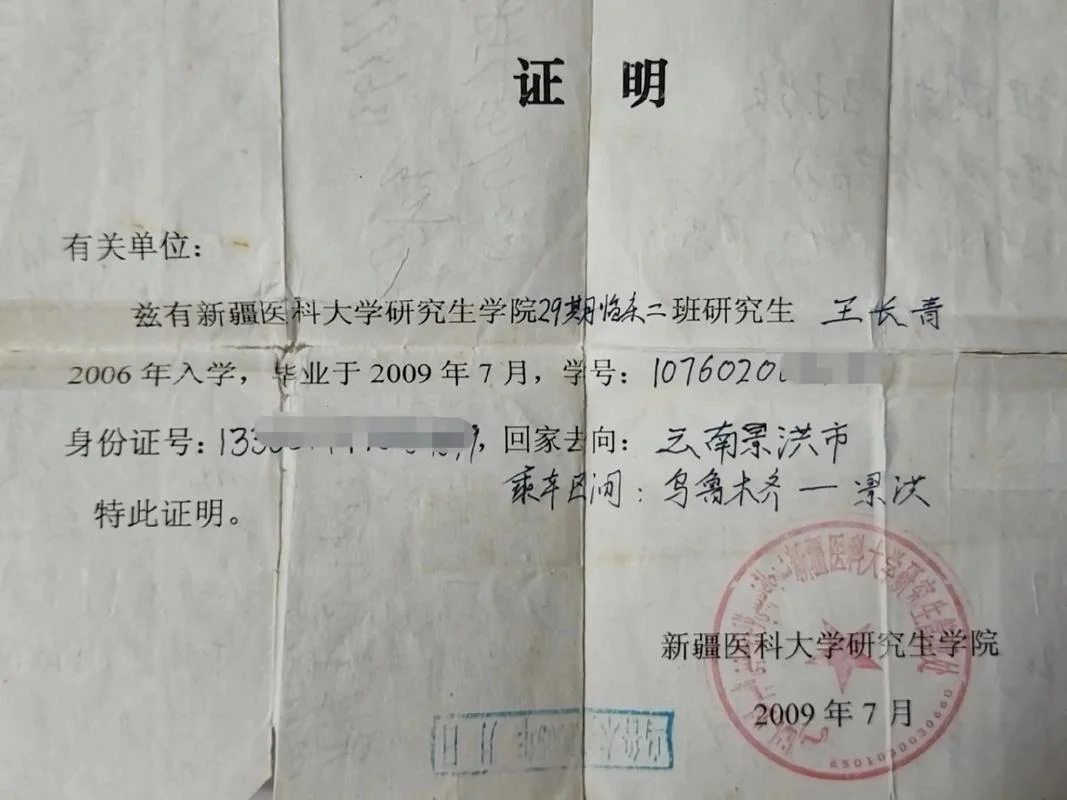 证 明
有关单位：
兹有新疆医科大学研究生学院29期临床二班研究生 王长青
2006年入学，毕业于2009年7月，学号：1076020
身份证号：133，回家去向：云南景洪市
乘车区间：乌鲁木齐—景洪
特此证明。
新疆医科大学研究生
新疆医科大学研究生学院
2009年7月
6501030030660
年 月 日